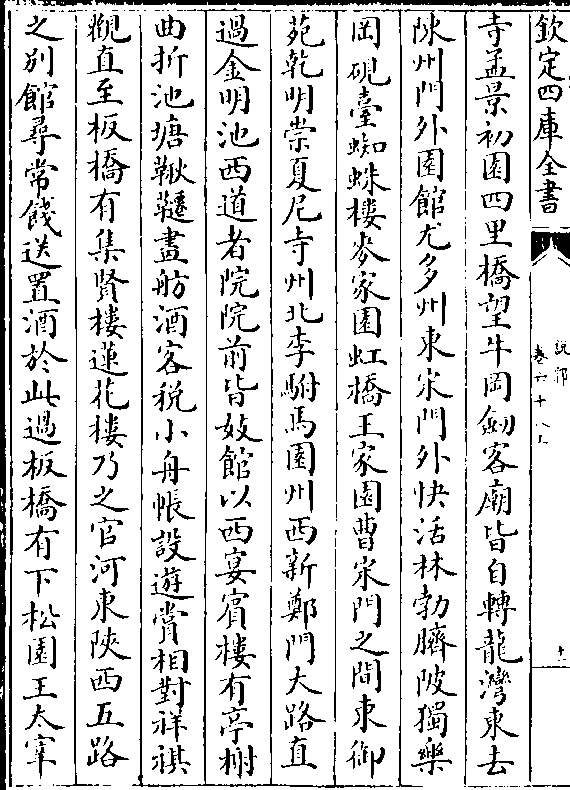 欽定四庫全書
說郛
卷六十八上
十一
寺孟景初園四里橋望牛岡劒客廟皆自轉龍灣東去
陳州門外園館尤多州東宋門外快活林勃臍陂獨樂
岡硯臺蜘蛛樓麥家園虹橋王家園曹宋門之間東御
苑乾明崇夏尼寺州北李駙馬園州西新鄭門大路直
過金明池西道者院院前皆妓館以西宴賓樓有亭榭
曲折池塘鞦韆畫舫酒客稅小舟帳設遊賞相對祥祺
觀直至板橋有集賢樓蓮花樓乃之官河東陝西五路
之别館尋常餞送置酒於此過板橋有下松園王太宰